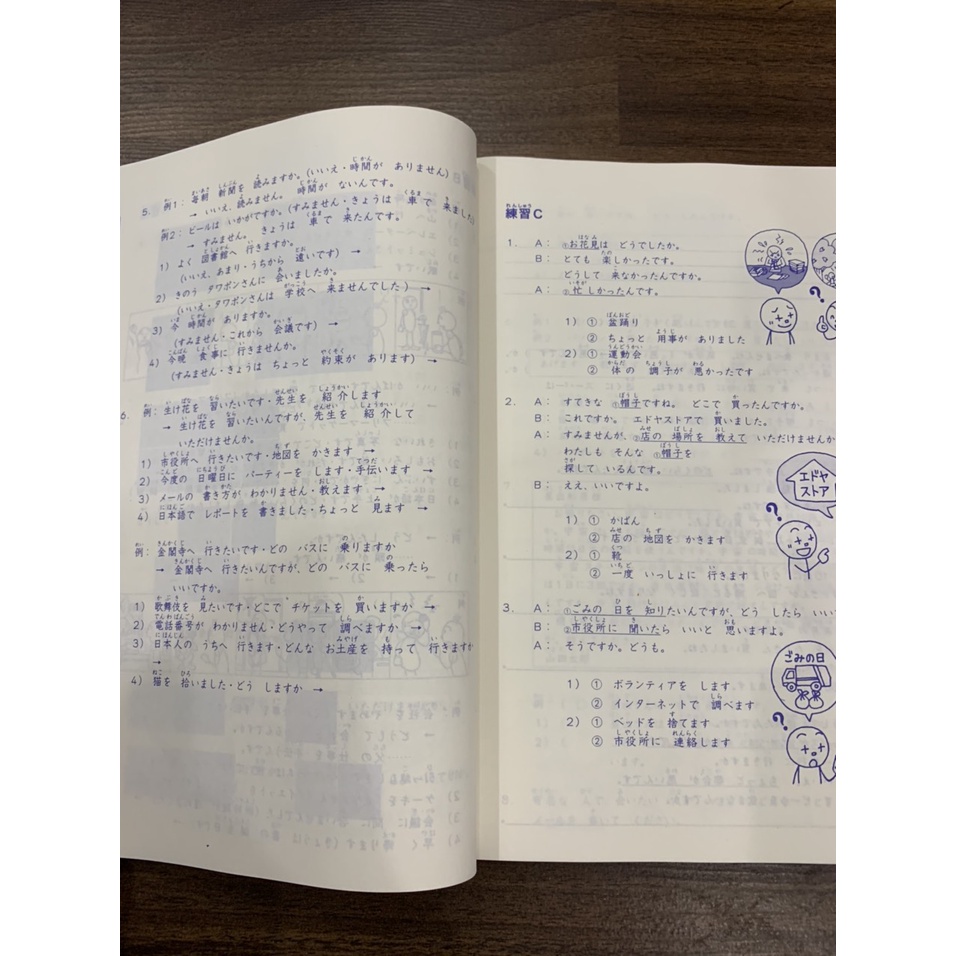 5. 例1：毎朝 新聞を 読みますか。(いいえ・時間が ありません)
→ いいえ、読みません。 時間が ないんです。
例2：ビールは いかがですか。(すみません・きょうは 車で 来ました)
→ すみません。 きょうは 車で 来たんです。
1) よく 図書館へ 行きますか。
(いいえ、あまり・うちから 遠いです) →
2) きのう タワポンさんに 会いましたか。
(いいえ・タワポンさんは 学校へ 来ませんでした) →
3) 今 時間が ありますか。
(すみません・これから 会議です) →
4) 今晩 食事に 行きませんか。
(すみません・きょうは ちょっと 約束が あります) →
6. 例：生け花を 習いたいです・先生を 紹介します
→ 生け花を 習いたいんですが、先生を 紹介して
いただけませんか。
1) 市役所へ 行きたいです・地図を かきます →
2) 今度の 日曜日に パーティーを します・手伝います →
3) メールの 書き方が わかりません・教えます →
4) 日本語で レポートを 書きました・ちょっと 見ます →
例：金閣寺へ 行きたいです・どの バスに 乗りますか
→ 金閣寺へ 行きたいんですが、どの バスに 乗ったら
いいですか。
1) 歌舞伎を 見たいです・どこで チケットを 買いますか →
2) 電話番号が わかりません・どうやって 調べますか →
3) 日本人の うちへ 行きます・どんな お土産を 持って 行きますか
→
4) 猫を 拾いました・どう しますか →
練習C
1. A： ①お花見は どうでしたか。
B： とても 楽しかったです。
どうして 来なかったんですか。
A： ②忙しかったんです。
1) ① 盆踊り
② ちょっと 用事が ありました
2) ① 運動会
② 体の 調子が 悪かったです
2. A： すてきな ①帽子ですね。 どこで 買ったんですか。
B： これですか。 エドヤストアで 買いました。
A： すみませんが、②店の 場所を 教えて いただけませんか
わたしも そんな ①帽子を
探して いるんです。
B： ええ、いいですよ。
エドヤ
ストア
1) ① かばん
② 店の 地図を かきます
2) ① 靴
② 一度 いっしょに 行きます
3. A： ①ごみの 日を 知りたいんですが、どう したら いい
B： ②市役所に 聞いたら いいと 思いますよ。
A： そうですか。どうも。
ごみの日
1) ① ボランティアを します
② インターネットで 調べます
2) ① ベッドを 捨てます
② 市役所に 連絡します